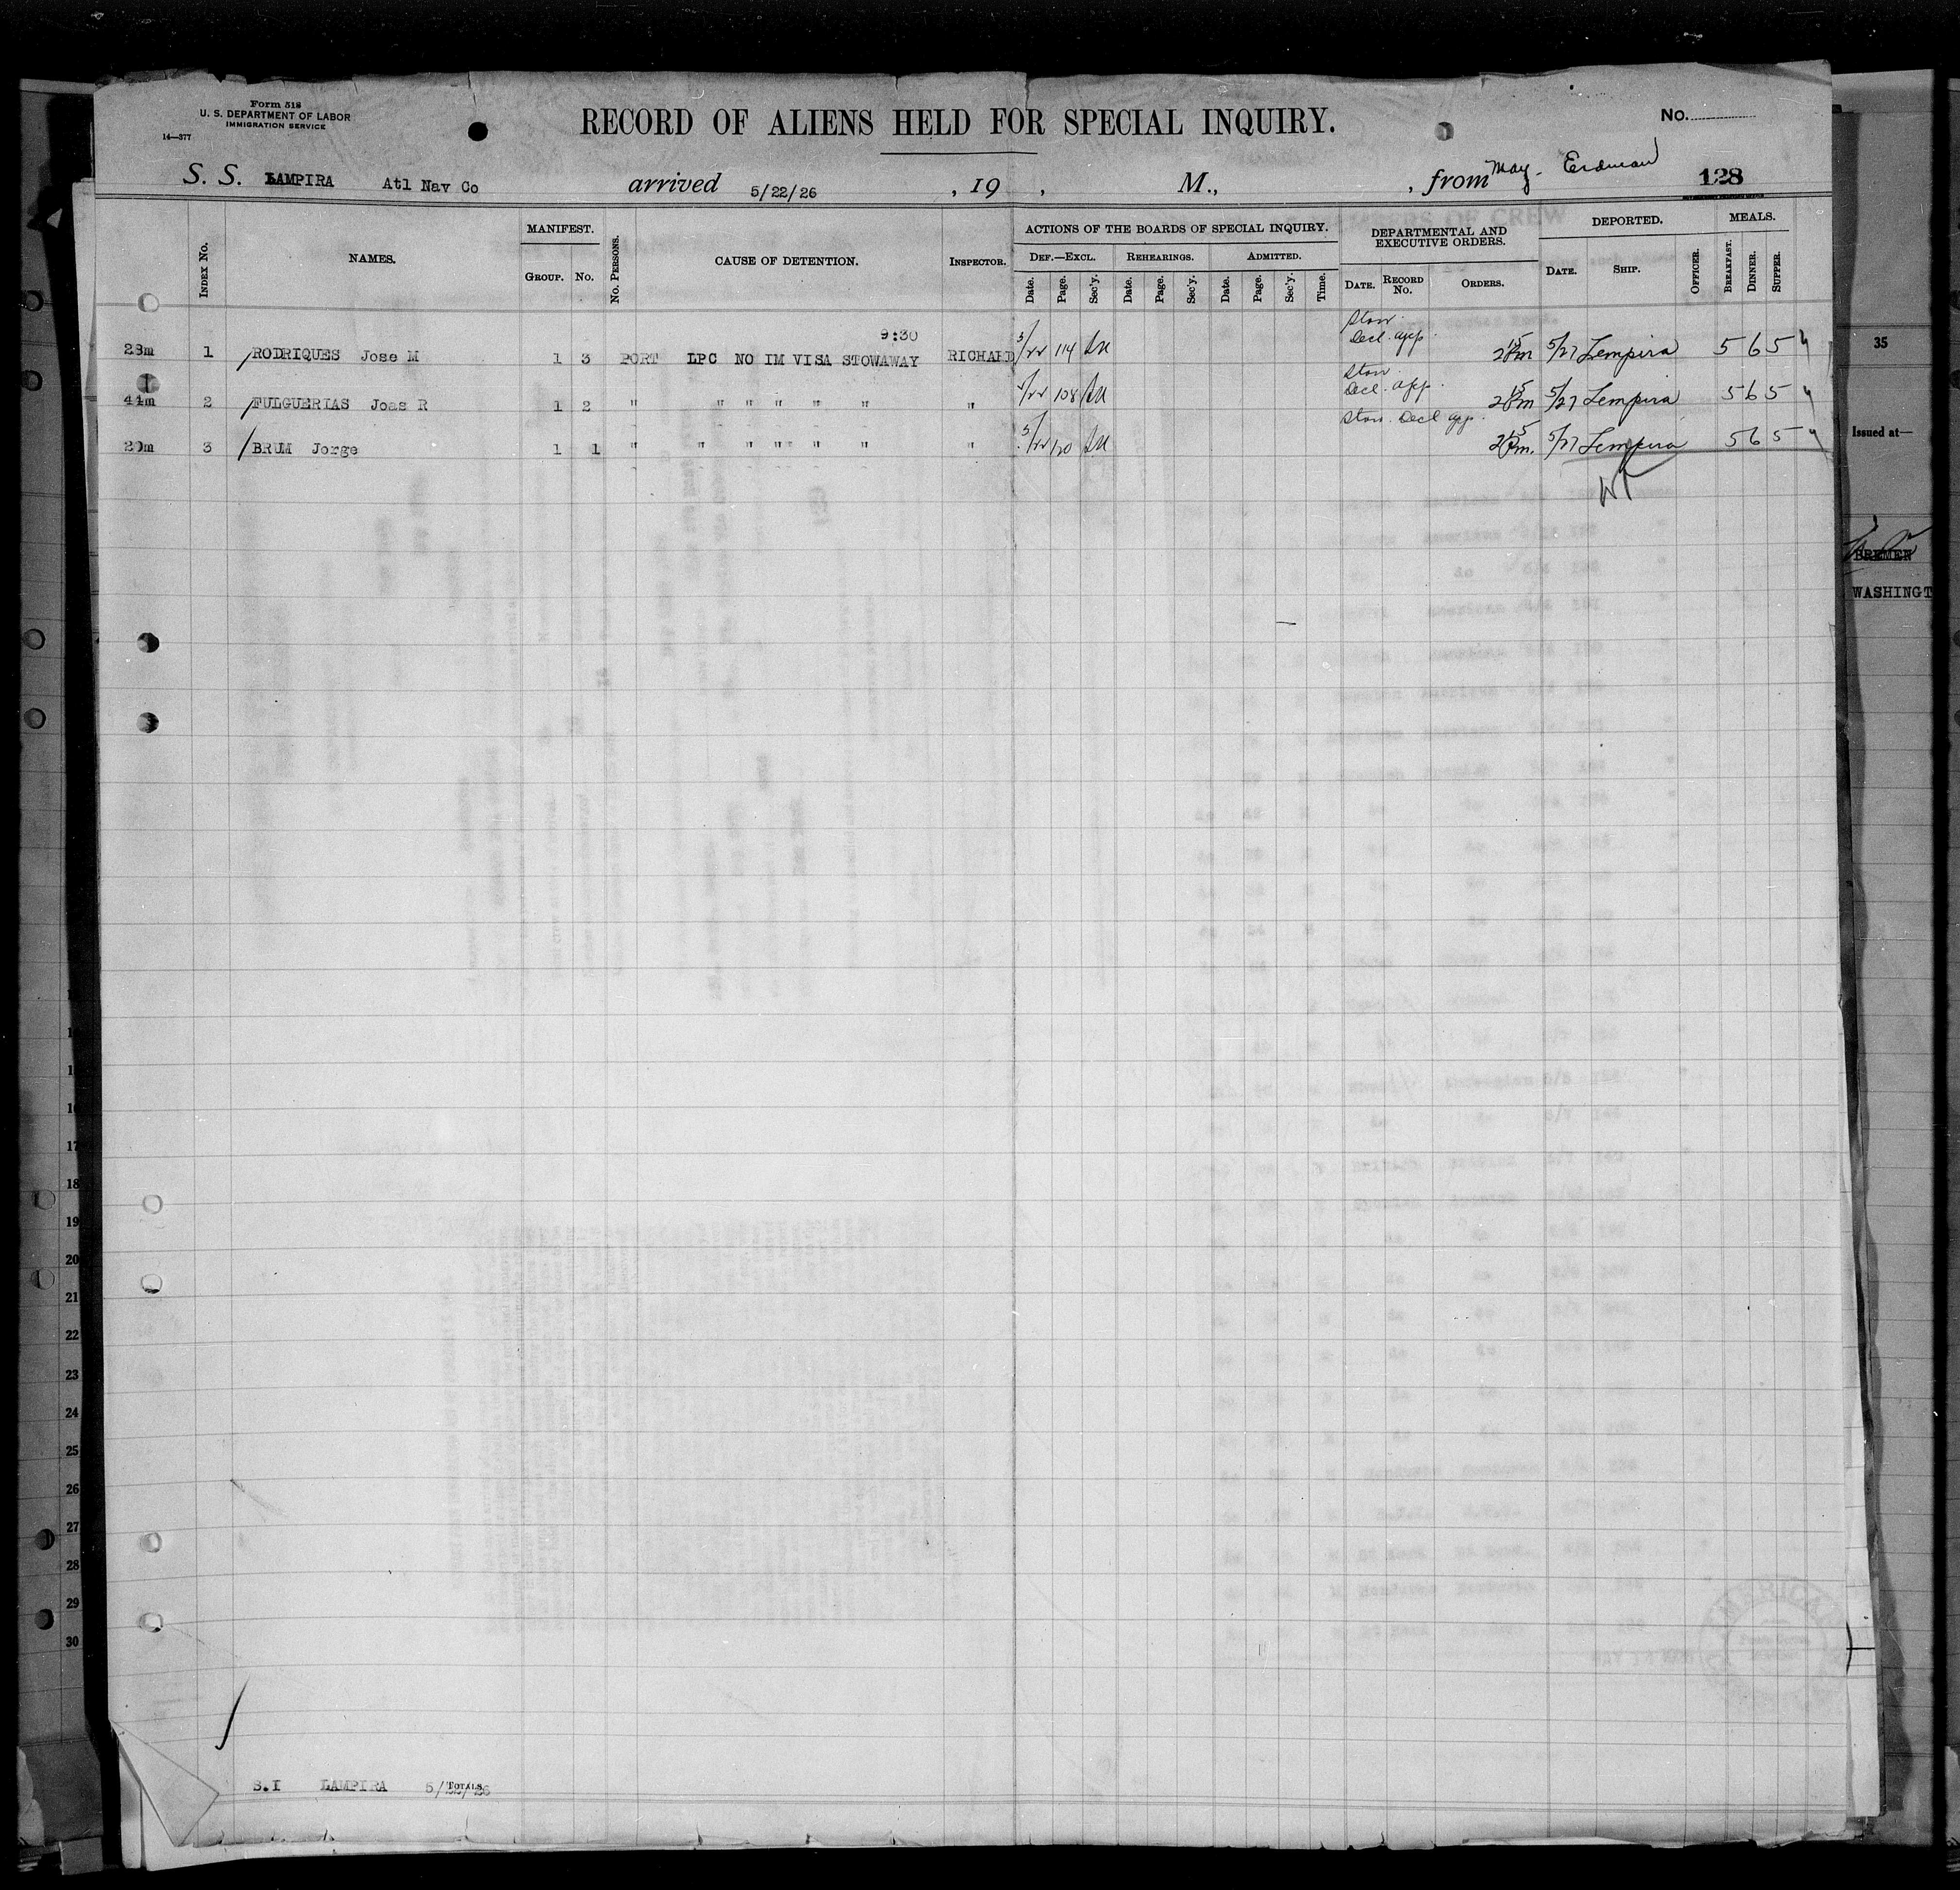 Form 518
U. S. DEPARTMENT OF LABOR
IMMIGRATION SERVICE
14—377
RECORD OF ALIENS HELD FOR SPECIAL INQUIRY.
No.
S. S. LAMPIRA Atl Nav Co arrived 5/22/26 , 19 , M., , from May. Erdman 128
INDEX No. NAMES. MANIFEST. GROUP. No. No. PERSONS. CAUSE OF DETENTION. INSPECTOR. ACTIONS OF THE BOARDS OF SPECIAL INQUIRY. DEF.—EXCL. Date. Page. Sec'y. REHEARINGS. Date. Page. Sec'y. ADMITTED. Date. Page. Sec'y. Time. DEPARTMENTAL AND EXECUTIVE ORDERS. DATE. RECORD No. ORDERS. DEPORTED. DATE. SHIP. OFFICER. MEALS. BREAKFAST. DINNER. SUPPER.
9:30 Stow.
28m 1 RODRIQUES Jose M 1 3 PORT LPC NO IM VISA STOWAWAY RICHARD 5/22 114 Decl. app. 5/27 Lempira 5 6 5
Stow.
44m 2 FULGUERIAS Joas R 1 2 " " " " " " " 108 Decl. app. 5/27 Lempira 5 6 5
Stow. Decl app.
29m 3 BRUM Jorge 1 1 " " " " " " " 5/22 120 5/27 Lempira 5 6 5
35
Issued at—
BREMEN
WASHINGT
17
18
19
20
21
22
23
24
25
26
27
28
29
30
S.I LAMPIRA 5/22/26 TOTALS